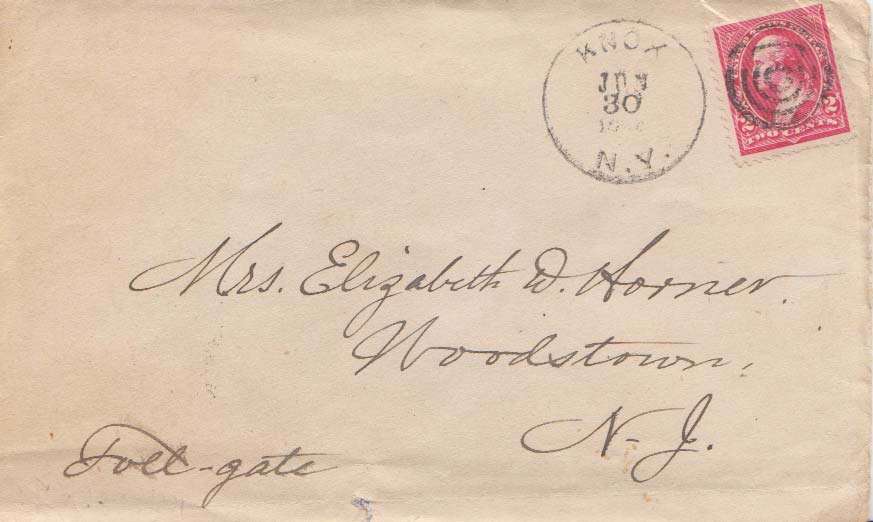 KNOX
JUN
30
N.Y.
2 TWO CENTS 2
Mrs. Elizabeth D. Horner.
Woodstown,
N. J.
Toll-gate